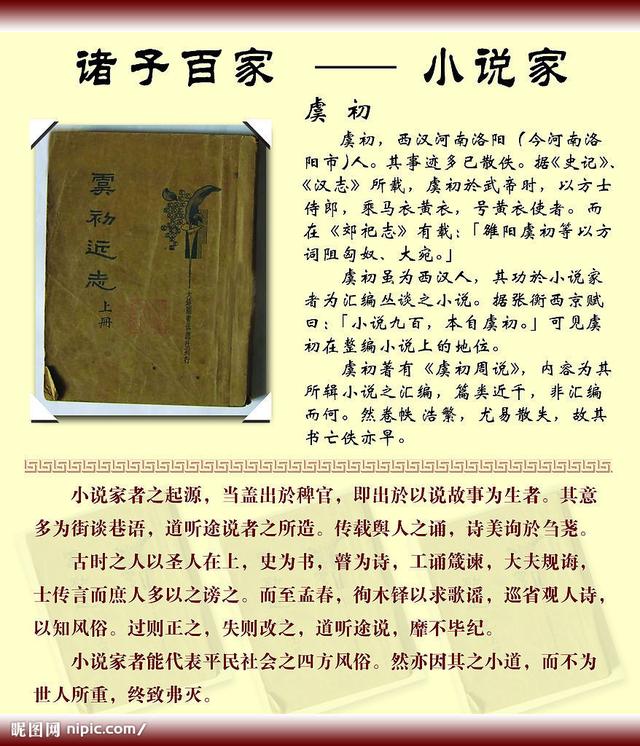 诸子百家 —— 小说家
虞初近志
上册
虞 初
虞初，西汉河南洛阳（今河南洛
阳市)人。其事迹多已散佚。据《史记》、
《汉志》所载，虞初於武帝时，以方士
侍郎，乘马衣黄衣，号黄衣使者。而
在《郊祀志》有载：「雒阳虞初等以方
词阻匈奴、大宛。」
虞初虽为西汉人，其功於小说家
者为汇编丛谈之小说。据张衡西京赋
曰：「小说九百，本自虞初。」可见虞
初在整编小说上的地位。
虞初著有《虞初周说》，内容为其
所辑小说之汇编，篇类近千，非汇编
而何。然卷帙浩繁，尤易散失，故其
书亡佚亦早。
小说家者之起源，当盖出於稗官，即出於以说故事为生者。其意
多为街谈巷语，道听途说者之所造。传载舆人之诵，诗美询於刍荛。
古时之人以圣人在上，史为书，瞽为诗，工诵箴谏，大夫规诲，
士传言而庶人多以之谤之。而至孟春，徇木铎以求歌谣，巡省观人诗，
以知风俗。过则正之，失则改之，道听途说，靡不毕纪。
小说家者能代表平民社会之四方风俗。然亦因其之小道，而不为
世人所重，终致弗灭。
昵图网 nipic.com/